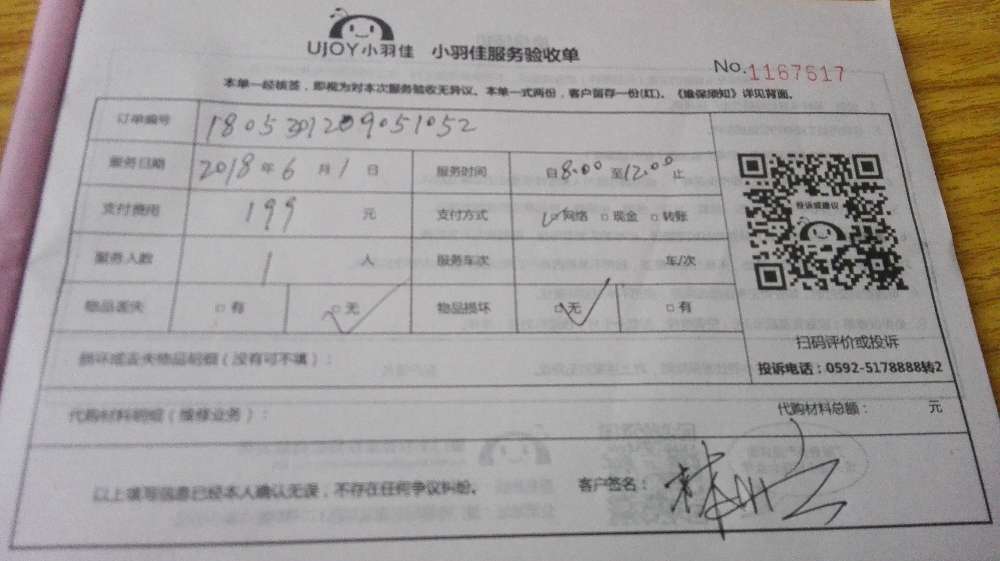 UJOY小羽佳 小羽佳服务验收单
No.1167517
本单一经核签，即视为对本次服务验收无异议。本单一式两份，客户留存一份(红)。《维保须知》详见背面。
订单编号 1805301209051052
服务日期 2018年6月1日 服务时间 自8:00至12:00止
支付费用 199 元 支付方式 网络 □现金 □转账
服务人数 1 人 服务车次 车/次
物品丢失 □有 □无 物品损坏 □无 □有
投诉或建议
扫码评价或投诉
投诉电话：0592-5178888转2
损坏或丢失物品明细（没有可不填）：
代购材料明细（维修业务）： 代购材料总额： 元
以上填写信息已经本人确认无误，不存在任何争议纠纷。 客户签名：